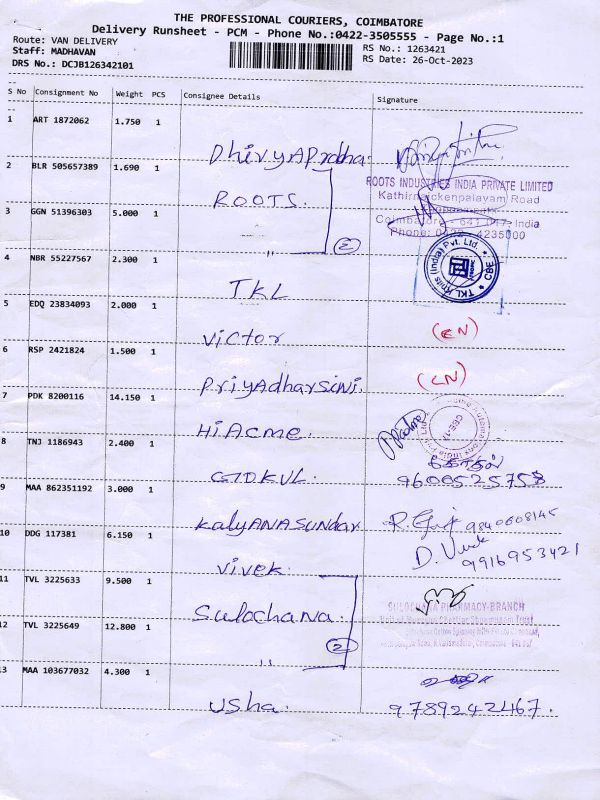 THE PROFESSIONAL COURIERS, COIMBATORE
Delivery Runsheet - PCM - Phone No.:0422-3505555 - Page No.:1
Route: VAN DELIVERY
Staff: MADHAVAN
DRS No.: DCJB126342101
RS No.: 1263421
RS Date: 26-Oct-2023
S No Consignment No Weight PCS Consignee Details Signature
1 ART 1872062 1.750 1
Dhivyapradha
2 BLR 505657389 1.690 1
ROOTS.
ROOTS INDUSTRIES INDIA PRIVATE LIMITED
Kathirnaickenpalayam Road
Coimbatore - 641 017 India
Phone: 4235000
3 GGN 51396303 5.000 1
" 2
4 NBR 55227567 2.300 1
TKL
TKL Knits (India) Pvt. Ltd. CBE
5 EDQ 23834093 2.000 1
Victor (CN)
6 RSP 2421824 1.500 1
Priyadharsini. (LN)
7 PDK 8200116 14.150 1
HiAcme.
8 TNJ 1186943 2.400 1
GOKUL.
9600525758
9 MAA 862351192 3.000 1
KalyANASUNDAR
9840608145
10 DDG 117381 6.150 1
Vivek.
9916953421
11 TVL 3225633 9.500 1
Sulochana.
SULOCHANA PHARMACY-BRANCH
12 TVL 3225649 12.800 1
" 2
13 MAA 103677032 4.300 1
Usha. 9789242467.